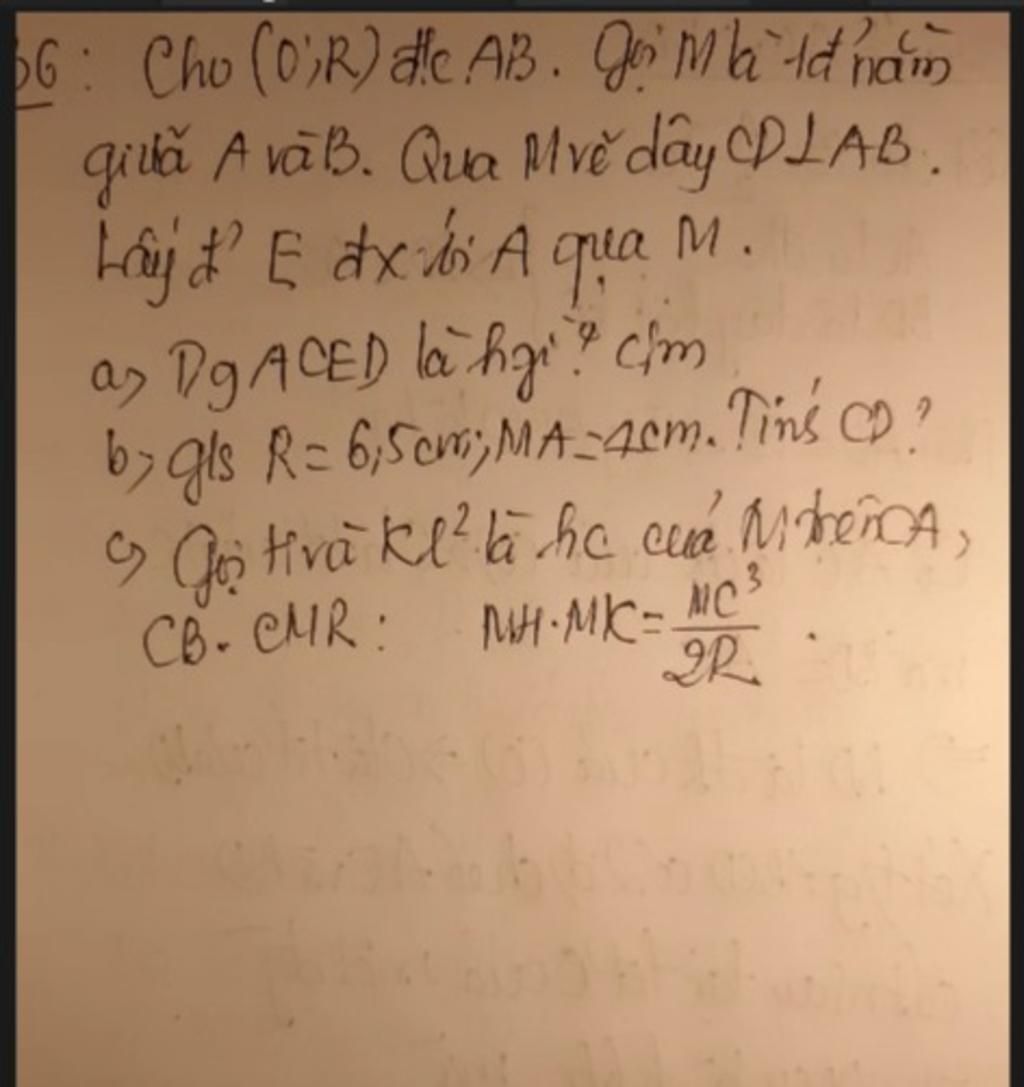 36: Cho (O;R) đ/c AB. Gọi M là 1 đ' nằm
giữa A và B. Qua M vẽ dây CD⊥AB.
Lấy đ' E đx với A qua M.
a, Dg ACED là h gì? C/m
b, g/s R = 6,5cm; MA=4cm. Tính CD?
c, Gọi H và K l² là hc của M trên CA,
CB. CMR: MH.MK = MC³/2R.